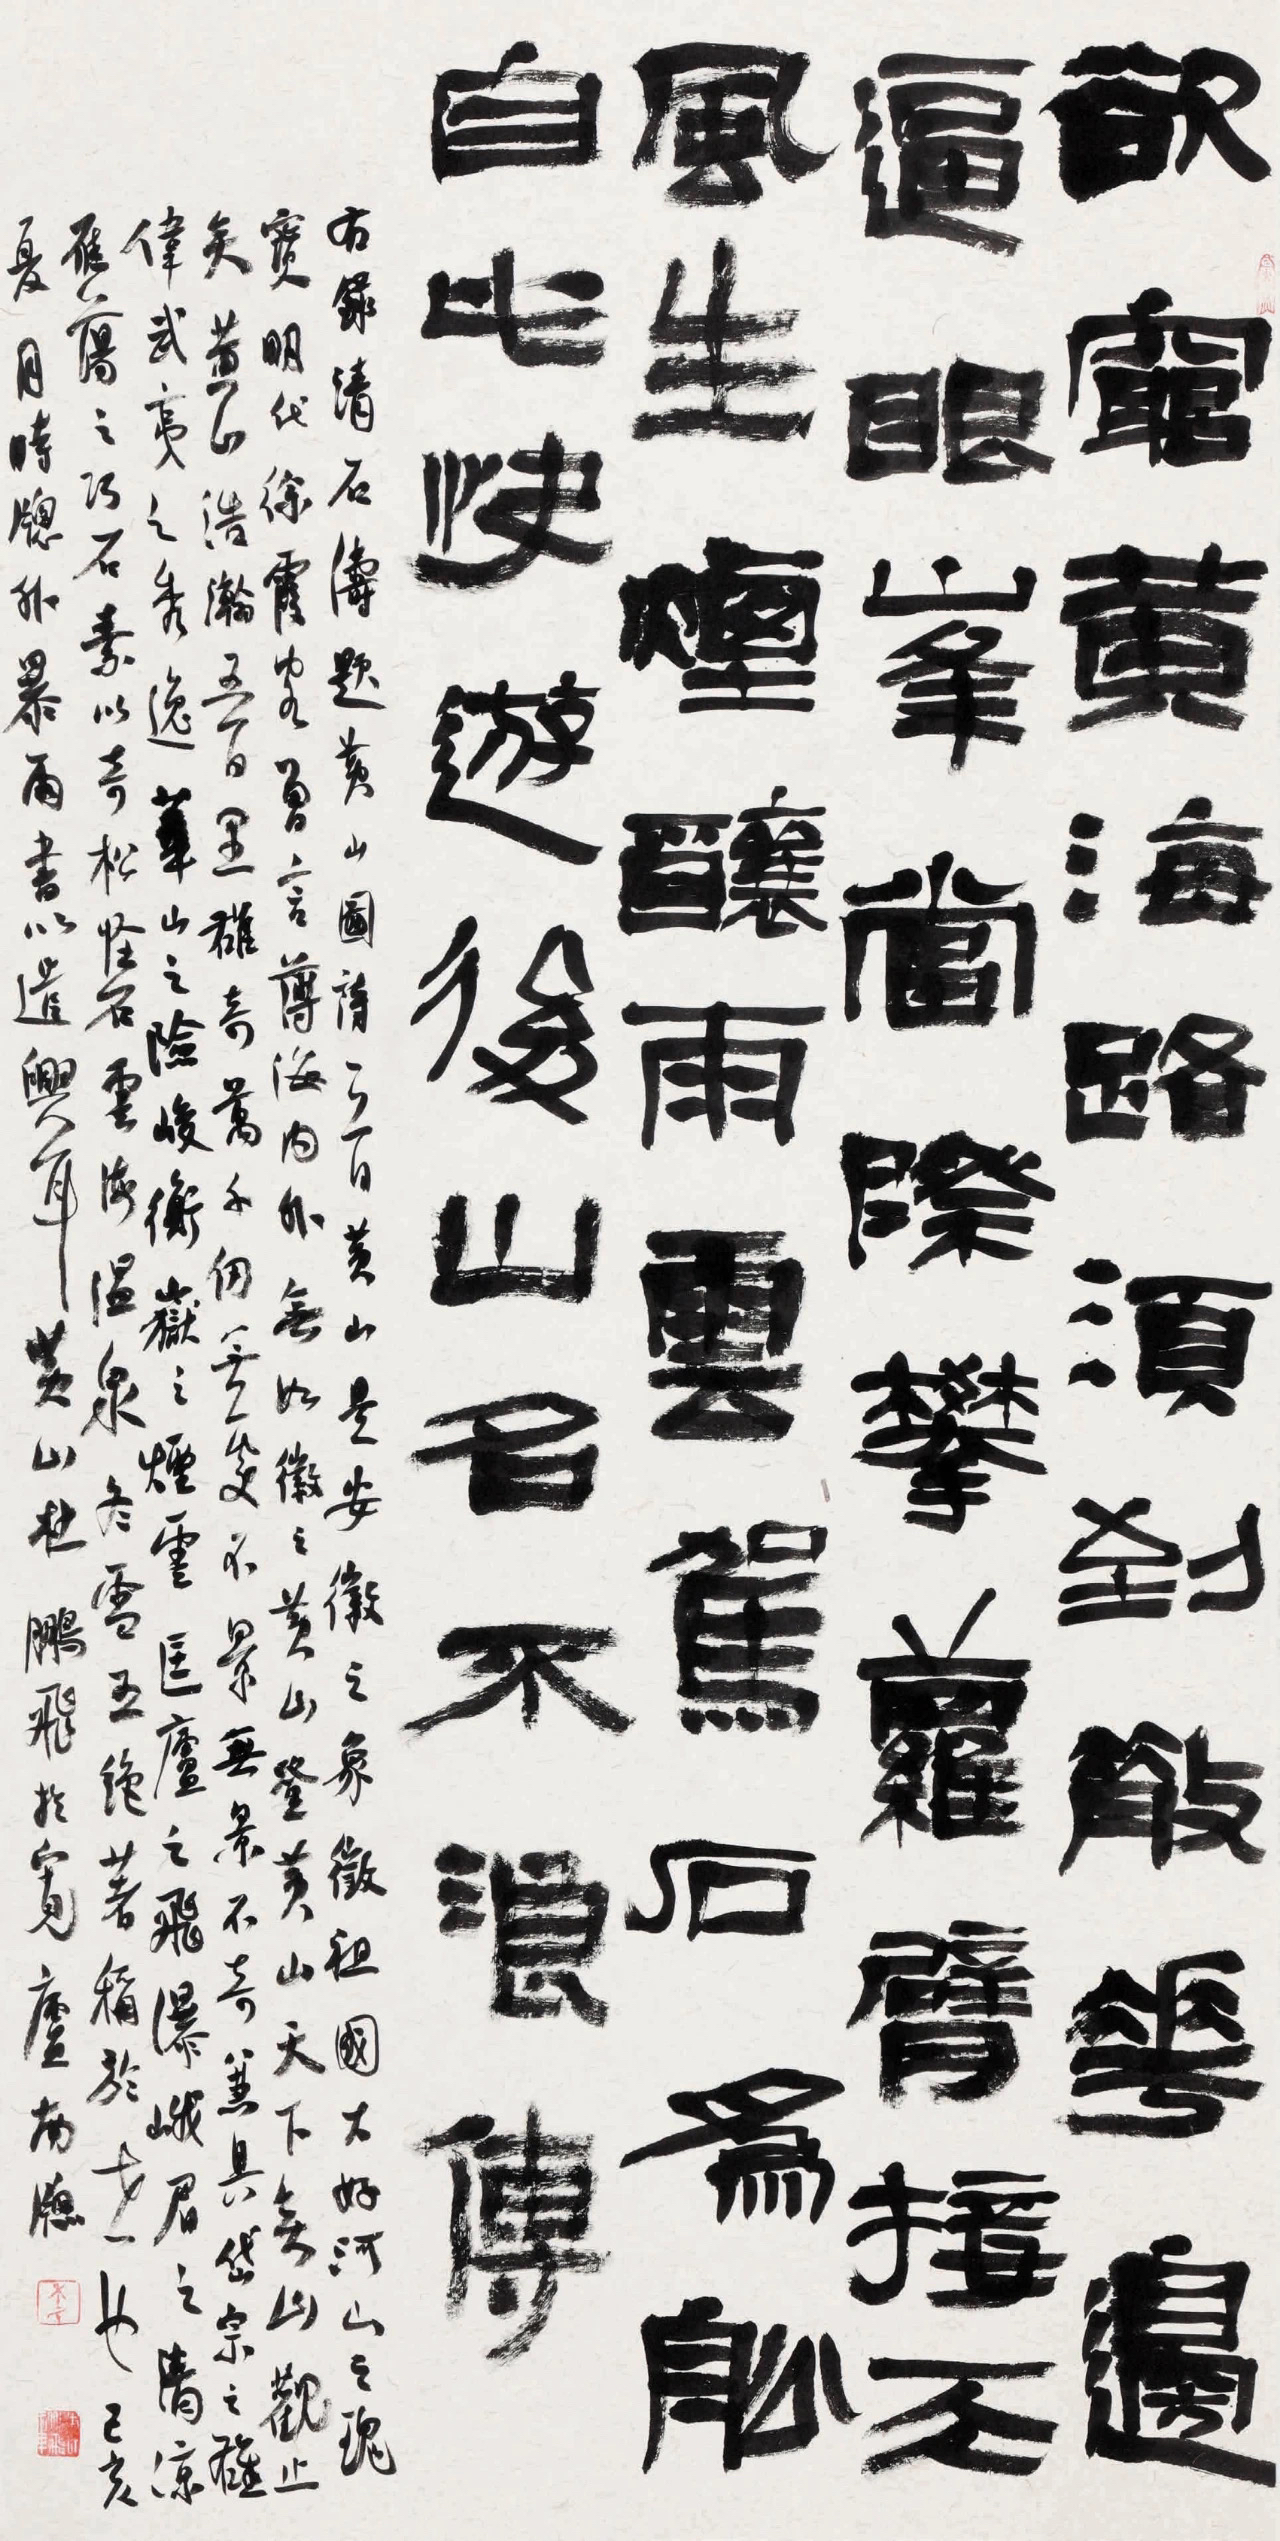 欲窮黃海路須到散花邊
逼眼峯當際攀蘿臂接天
風生煙釀雨雲駕石為船
自此快遊後山名不浪傳
右錄清石濤題黃山圖詩一首黃山是安徽之象徵祖國大好河山之瑰
寶明代徐霞客曾言薄海內外無如徽之黃山登黃山天下無山觀止
矣黃山浩瀚五百里雄奇萬千仞無處不景無景不奇兼具岱宗之雄
偉武夷之秀逸華山之險峻衡嶽之煙雲匡廬之飛瀑峨眉之清涼
雁蕩之巧石素以奇松怪石雲海溫泉冬雪五絕著稱於世也己亥
夏月時牕外暴雨書以遣興耳黃山杜鵬飛於寬廬南牕